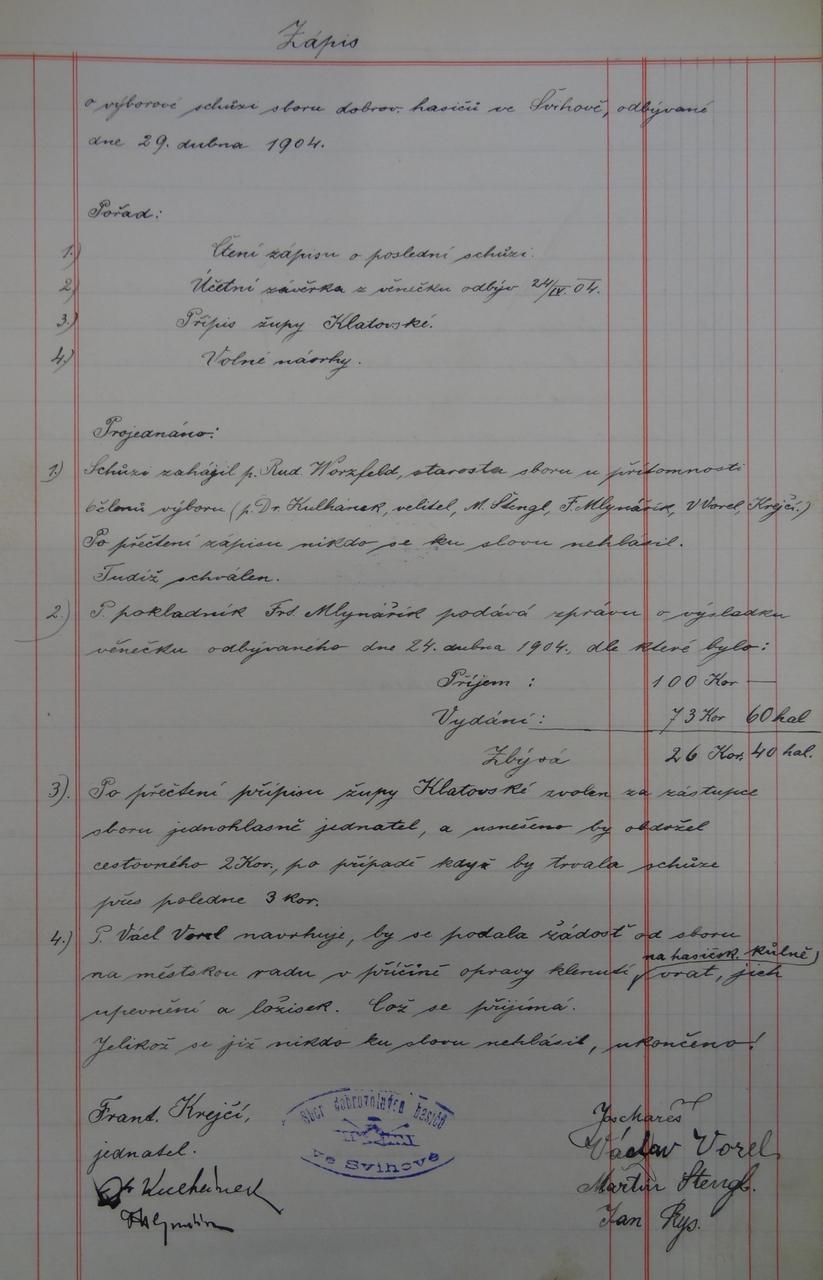 Zápis
o výborové schůzi sboru dobrov. hasičů ve Švihově, odbývané
dne 29. dubna 1904.
Pořad:
1.) Čtení zápisu o poslední schůzi.
2) Účetní závěrka z věnečku odbýv 24/IV. 04.
3.) Přípis župy Klatovské.
4.) Volné návrhy.
Projednáno:
1.) Schůzi zahájil p. Rud. Worzfeld, starosta sboru u přítomnosti
6členů výboru (p. Dr. Kulhánek, velitel, M. Štengl, F. Mlynářík, V Vorel, Krejčí,)
Po přečtení zápisu nikdo se ku slovu nehlásil.
Tudíž schválen.
2.) P. pokladník Frt. Mlynářík podává zprávu o výsledku
věnečku odbývaného dne 24. dubna 1904., dle které bylo:
Příjem : 100 Kor —
Vydání : 73 Kor 60 hal
Zbývá 26 Kor. 40 hal.
3). Po přečtení přípisu župy Klatovské zvolen za zástupce
sboru jednohlasně jednatel, a usnešeno by obdržel
cestovného 2 Kor., po případě když by trvala schůze
přes poledne 3 kor.
4.) P. Václ Vorel navrhuje, by se podala žádosť od sboru
na hasičsk. kůlně
na městskou radu v příčině opravy klenutí, vrat, jich
upevnění a ložisek. Což se přijímá.
Jelikož se již nikdo ku slovu nehlásil, ukončeno!
Frant. Krejčí,
jednatel.
Dr Kulhánek
Sbor dobrovolných hasičů
ve Svihově
Jos Mareš
Václav Vorel
Martin Štengl.
Jan Rys.